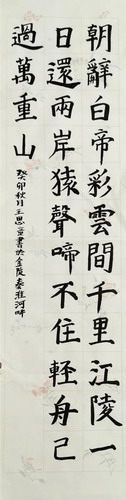 朝辭白帝彩雲間千里江陵一
日還兩岸猿聲啼不住輕舟已
過萬重山
癸卯秋月王思言書於金陵秦淮河畔